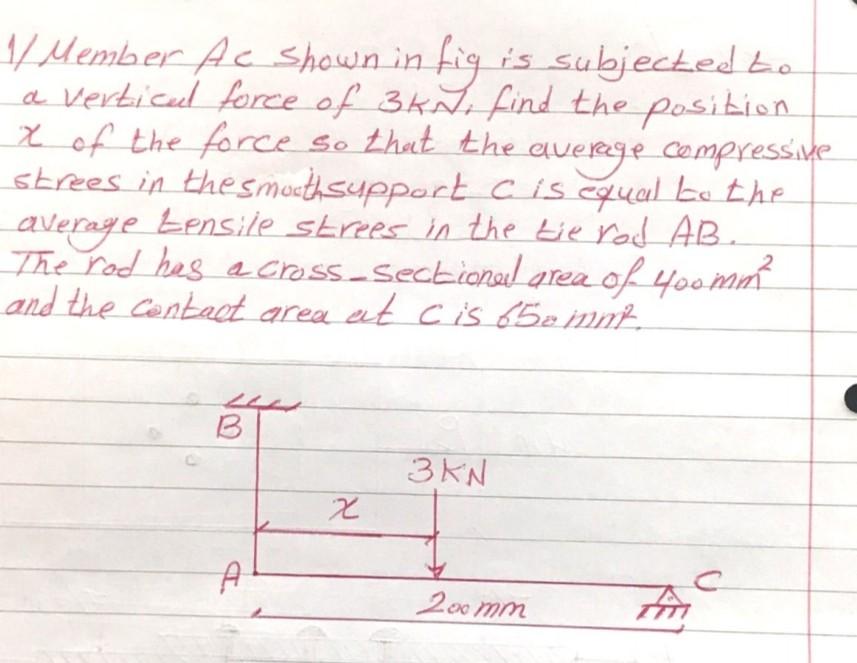 1/ Member Ac shown in fig is subjected to
a vertical force of 3KN, find the position
x of the force so that the average compressive
strees in the smooth support C is equal to the
average tensile strees in the tie rod AB.
The rod has a cross-sectional area of 400mm²
and the contact area at C is 650mm².
B
3KN
x
A
C
200mm